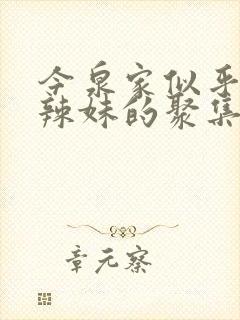 今泉家似乎
辣妹的聚集
章元察